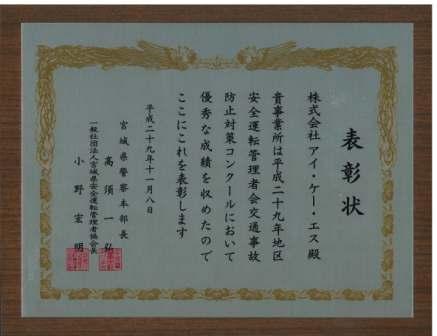 表彰状
株式会社アイ・ケー・エス殿
貴事業所は平成二十九年地区
安全運転管理者会交通事故
防止対策コンクールにおいて
優秀な成績を収めたので
ここにこれを表彰します
平成二十九年十一月八日
宮城県警察本部長
高須一弘
一般社団法人宮城県安全運転管理者協会長
小野宏明